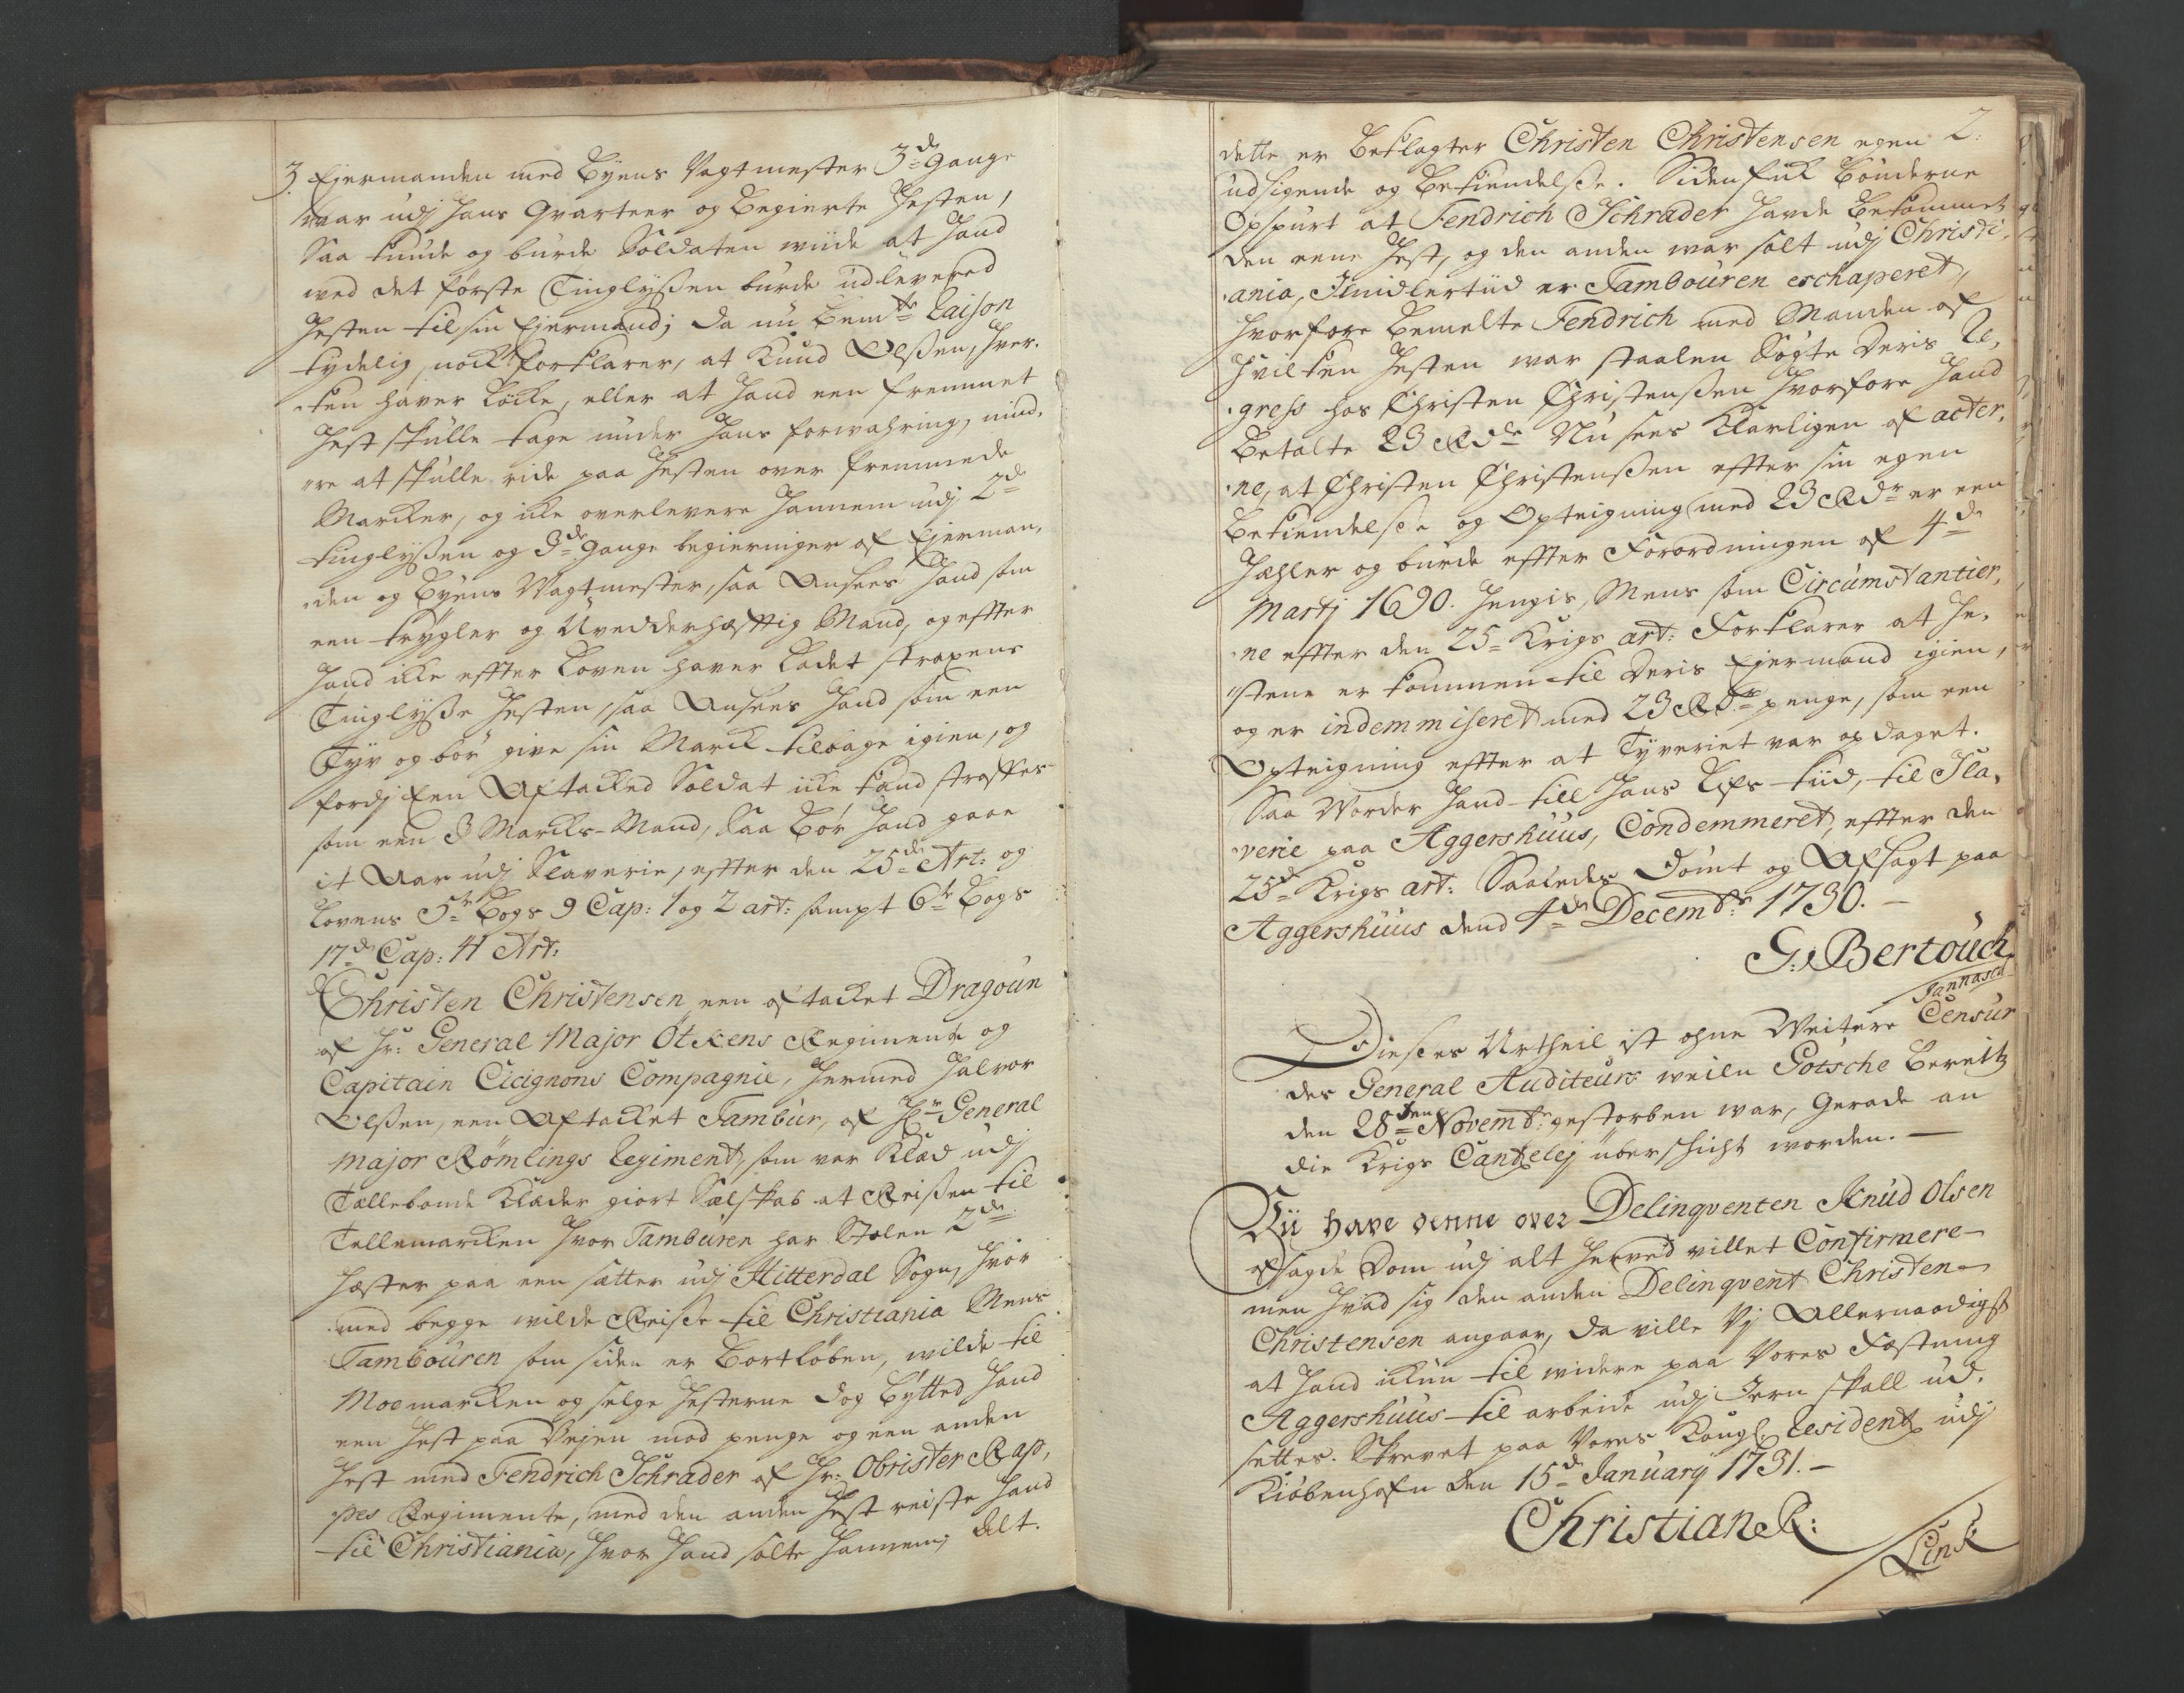 3. Ejermanden med Byens Vagtmester 3de gange
var udj hans Qvarteer og begierte Hesten,
Saa kunde og burde Soldaten wiide at hand
wed det første Tinglyßen burde udlevered
Hesten til sin Ejermand; da nu bemte Raison
tydelig nock forklarer, at Knud Olßen, hver-
-ken haver Løcke, eller at hand een fremmet
Hest skulle tage under hans forwahring, mind-
-re at skulle ride paa Hesten over fremmede
Marcker, og icke overlevere hannem udj 2de
tinglyßen og 3de gange begieringer af Ejerman-
-den og Byens Vagtmester, saa Ansees hand som
een trygler og Uvedderhæfftig Mand, og effter
hand icke effter Loven haver ladet straxens
Tinglyße Hesten, saa Ansees hand som een
Tyv og bør give sin Marck tilbage igien, og
fordj Een Aftacked Soldat icke kand straffes
som een 3 Marcks-Mand, Saa bør hand gaae
it Aar udj Slaverie, effter den 25de Art: og
Lovens 5te Bogs 9 Cap: 1 og 2 art: sampt 6te Bogs
17de Cap: 41 Art:
Christen Christensen een aftacket Dragoun
af Hr: General Major Ötkens Regimente og
Capitain Cicignons Compagnie, hermed Halvor
Olßen, een Aftacket Tambur, af Hr General
Major Römlings Regiment, som var klæd udj
Tællebonde Klæder giort Sælskab at Reißen til
Tellemarcken hvor Tamburen har Stolen 2de
Hæster paa een sætter udj Hitterdal Sogn, hvor
med begge wilde Reiße til Christiania Mens
Tambouren som siden er bortløben, wilde til
Moemarcken og selge Hesterne dog bytted hand
een Hest paa Vejen mod penge og een anden
Hest med Fendrich Schrader af Hr: Obrister Rap-
pes Regimente, med den anden Hest reiste hand
til Christiania, hvor hand solte hannem, Alt.
2.
dette er beklagter Christen Christensen egen
udsigende og bekiendelsße. Siden fick bönderne
Opspurt at Fendrich Schrader havde bekommet
den eene Hest, og den anden war solt udj Christi-
-ania, Imidlertiid er Tambouren eschaperet,
hvorfore bemelte Fendrich med Manden af
hvilken Hesten war staalen Søgte deris Re-
-gress hos Christen Christensßen hvorfore hand
betalte 23 Rdr Nu sees klarligen af acter-
-ne, at Christen Christenßen effter sin egen
bekiendelsße og Opteigning med 23 Rdr er een
Hæhler og burde effter Forordningen af 4de
Martj 1690. henges, Mens som Circumstantier-
-ne effter den 25de Krigs art: Forklarer at He-
-stene er kommen til deris Ejermand igien,
og er indemmiseret med 23 Rdr penge, som een
Opteigning effter at Tyveriet var opdaget.
Saa Worder hand till hans Lifs tiid, til Sla-
-verie paa Aggershuus, Condemmeret, effter den
25de Krigs art: Saaledes Dömt og Afsagt paa
Aggershuus dend 4de Decembr 1730. –
G: v Bertouch
Dießes Urtheil ist ohne Weitere Censur
des General Auditeurs weiln Gotsche bereitz
den 28ten Novembr: gestorben war, Gerade an
die Krigs Cantzeley überschicht worden. –
Vii have denne over Delinqventen Knud Olsen
afsagde Dom udj alt herved villet Confirmere
men hvad sig den anden Delinqvent Christen
Christensen angaar, da ville Vj Allernaadigst
at hand ickun til widere paa Vores Fæstning
Aggershuus til arbeide udj Jern skall ud-
settes. Skrevet paa Vores Kongl: Residentz udj
Kiöbenhafn den 15de January 1731. –
Christian R:
Linck